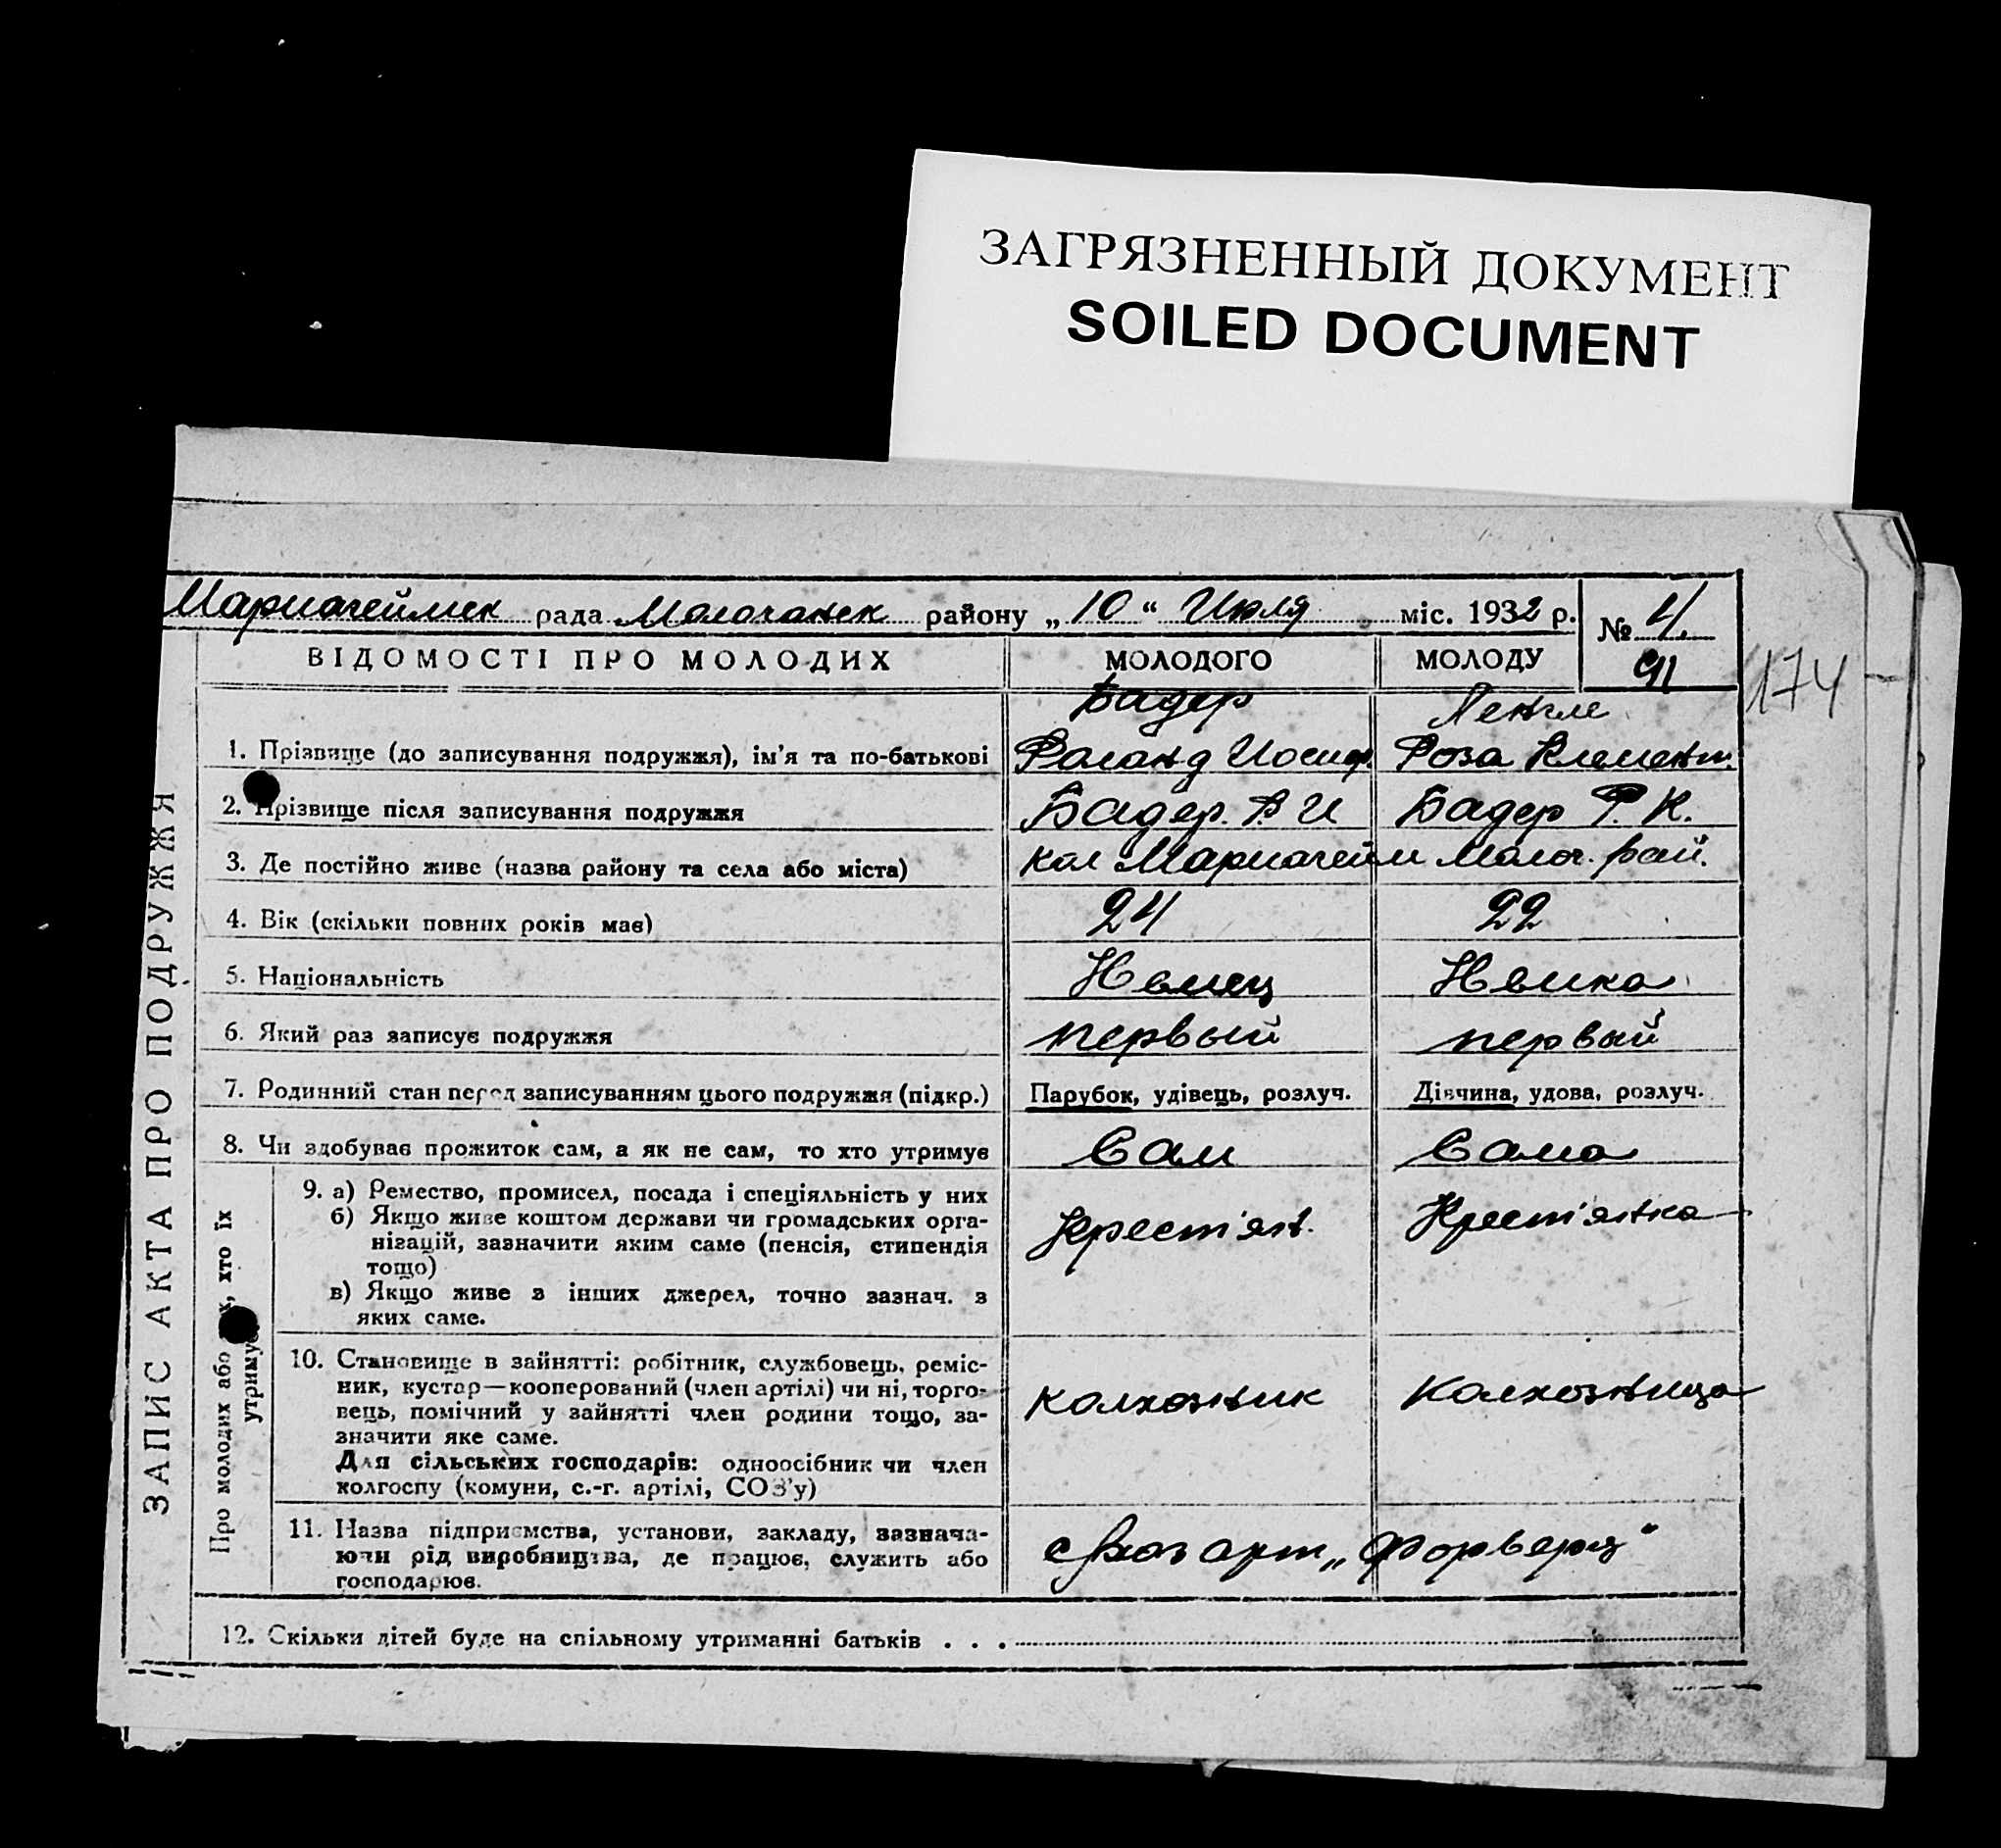 ЗАГРЯЗНЕННЫЙ ДОКУМЕНТ
SOILED DOCUMENT
Мариагеймск рада Молочанск району „10“ Июля міс. 1932 р. № 4.
ВІДОМОСТІ ПРО МОЛОДИХ МОЛОДОГО МОЛОДУ 91
174
Бадер Ленгле
1. Прізвище (до записування подружжя), ім'я та по-батькові Роланд Иосиф. Роза Клемент.
2. Прізвище після записування подружжя Бадер. Р. И Бадер Р. К.
3. Де постійно живе (назва району та села або міста) кол Мариагейм Молоч. рай.
4. Вік (скільки повних років має) 24 22
5. Національність Немец Немка
6. Який раз записує подружжя первый первый
7. Родинний стан перед записуванням цього подружжя (підкр.) Парубок, удівець, розлуч. Дівчина, удова, розлуч.
8. Чи здобуває прожиток сам, а як не сам, то хто утримує Сам Сама
9. а) Ремество, промисел, посада і спеціяльність у них
б) Якщо живе коштом держави чи громадських орга- Крест'ян. Крест'янка
нізацій, зазначити яким саме (пенсія, стипендія
тощо)
в) Якщо живе з інших джерел, точно зазнач. з
яких саме.
10. Становище в зайнятті: робітник, службовець, реміс-
ник, кустар—кооперований (член артілі) чи ні, торго- колхозник колхозница
вець, помічний у зайнятті член родини тощо, за-
значити яке саме.
Для сільських господарів: одноосібник чи член
колгоспу (комуни, с.-г. артілі, СОЗ'у)
11. Назва підприємства, установи, закладу, зазнача-
ючи рід виробництва, де працює, служить або арт „Форверц“
господарює.
12. Скільки дітей буде на спільному утриманні батьків . . .
ЗАПИС АКТА ПРО ПОДРУЖЖЯ
Про молодих або х, хто їх
утримує